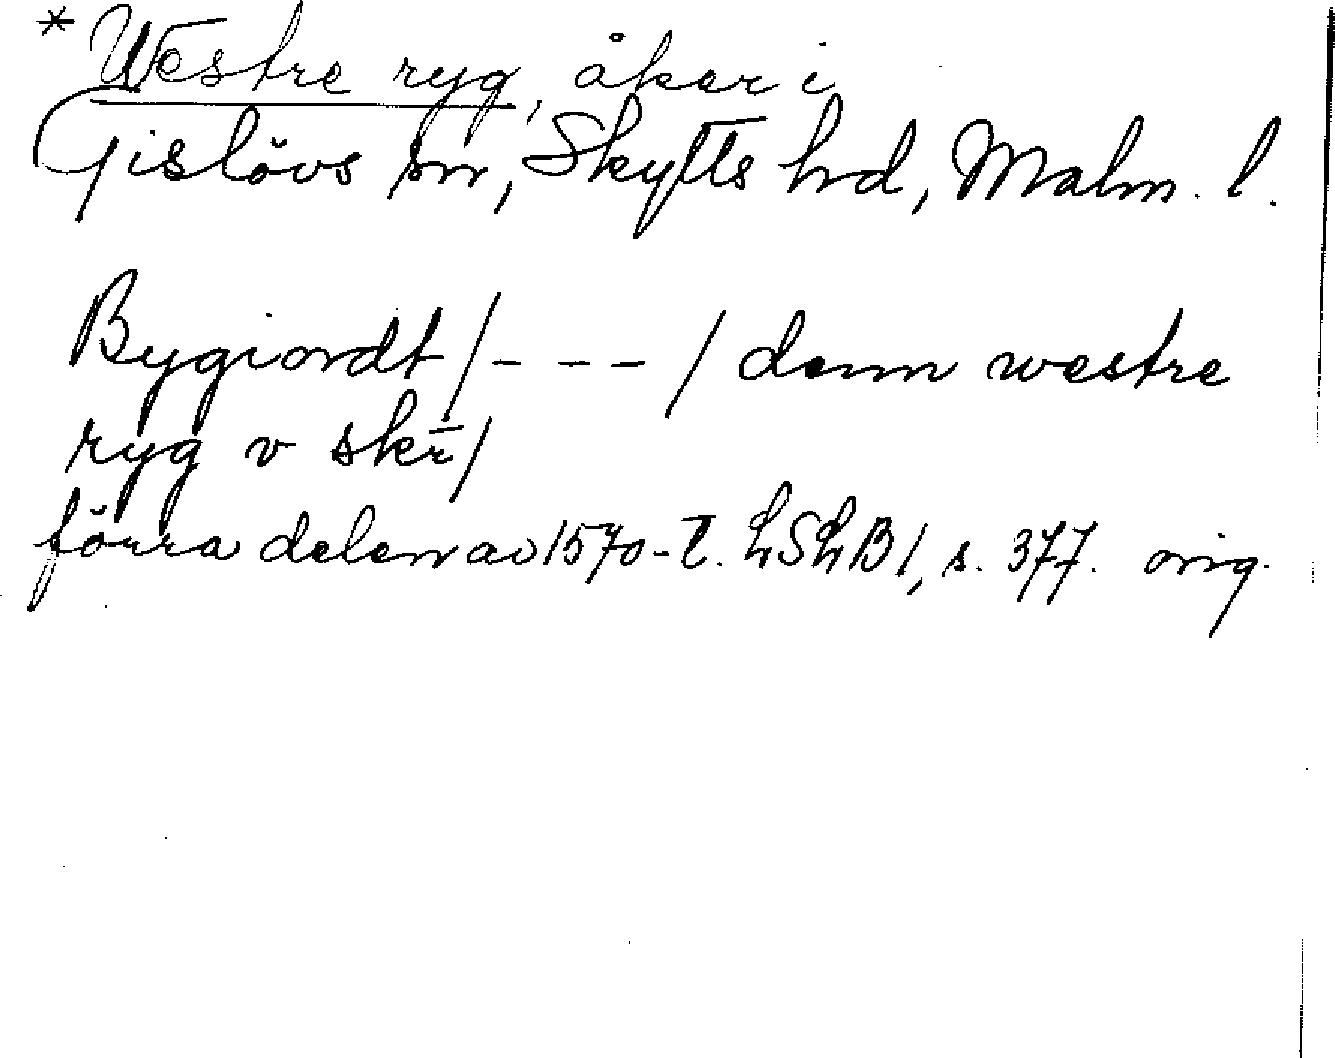 * Westre ryg, åker i
Gislövs sn, Skytts hrd, Malm. l.
Bygiordt /- - - / denn westre
ryg v skr̄/
förra delen av 1570-t. LSLB1, s. 377. orig.